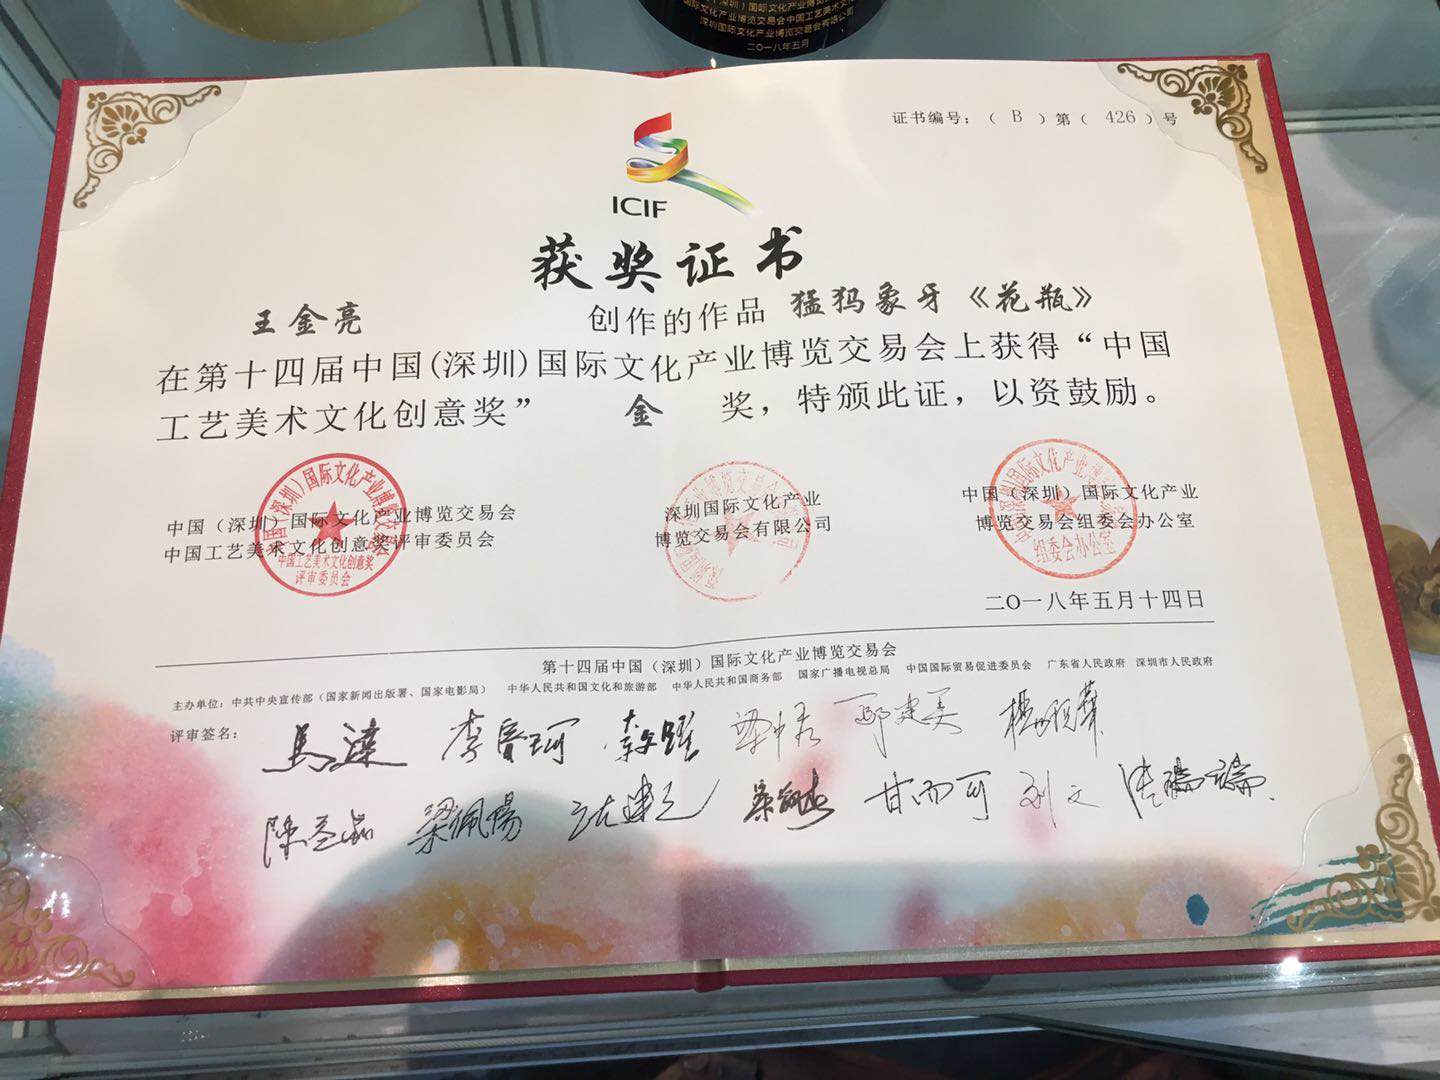 国际文化产业博览交易会中国工艺美术文
深圳国际文化产业博览交易会有限公司
二〇一八年五月
证书编号：（ B ）第（ 426 ）号
ICIF
获奖证书
王金亮 创作的作品 猛犸象牙《花瓶》
在第十四届中国(深圳)国际文化产业博览交易会上获得“中国
工艺美术文化创意奖” 金 奖，特颁此证，以资鼓励。
中国（深圳）国际文化产业博览交易会
中国工艺美术文化创意奖评审委员会
中国工艺美术文化创意奖
评审委员会
深圳国际文化产业
博览交易会有限公司
中国（深圳）国际文化产业
博览交易会组委会办公室
组委会办公室
二〇一八年五月十四日
第十四届中国（深圳）国际文化产业博览交易会
主办单位：中共中央宣传部（国家新闻出版署、国家电影局） 中华人民共和国文化和旅游部 中华人民共和国商务部 国家广播电视总局 中国国际贸易促进委员会 广东省人民政府 深圳市人民政府
评审签名：
梁佩阳 甘而可